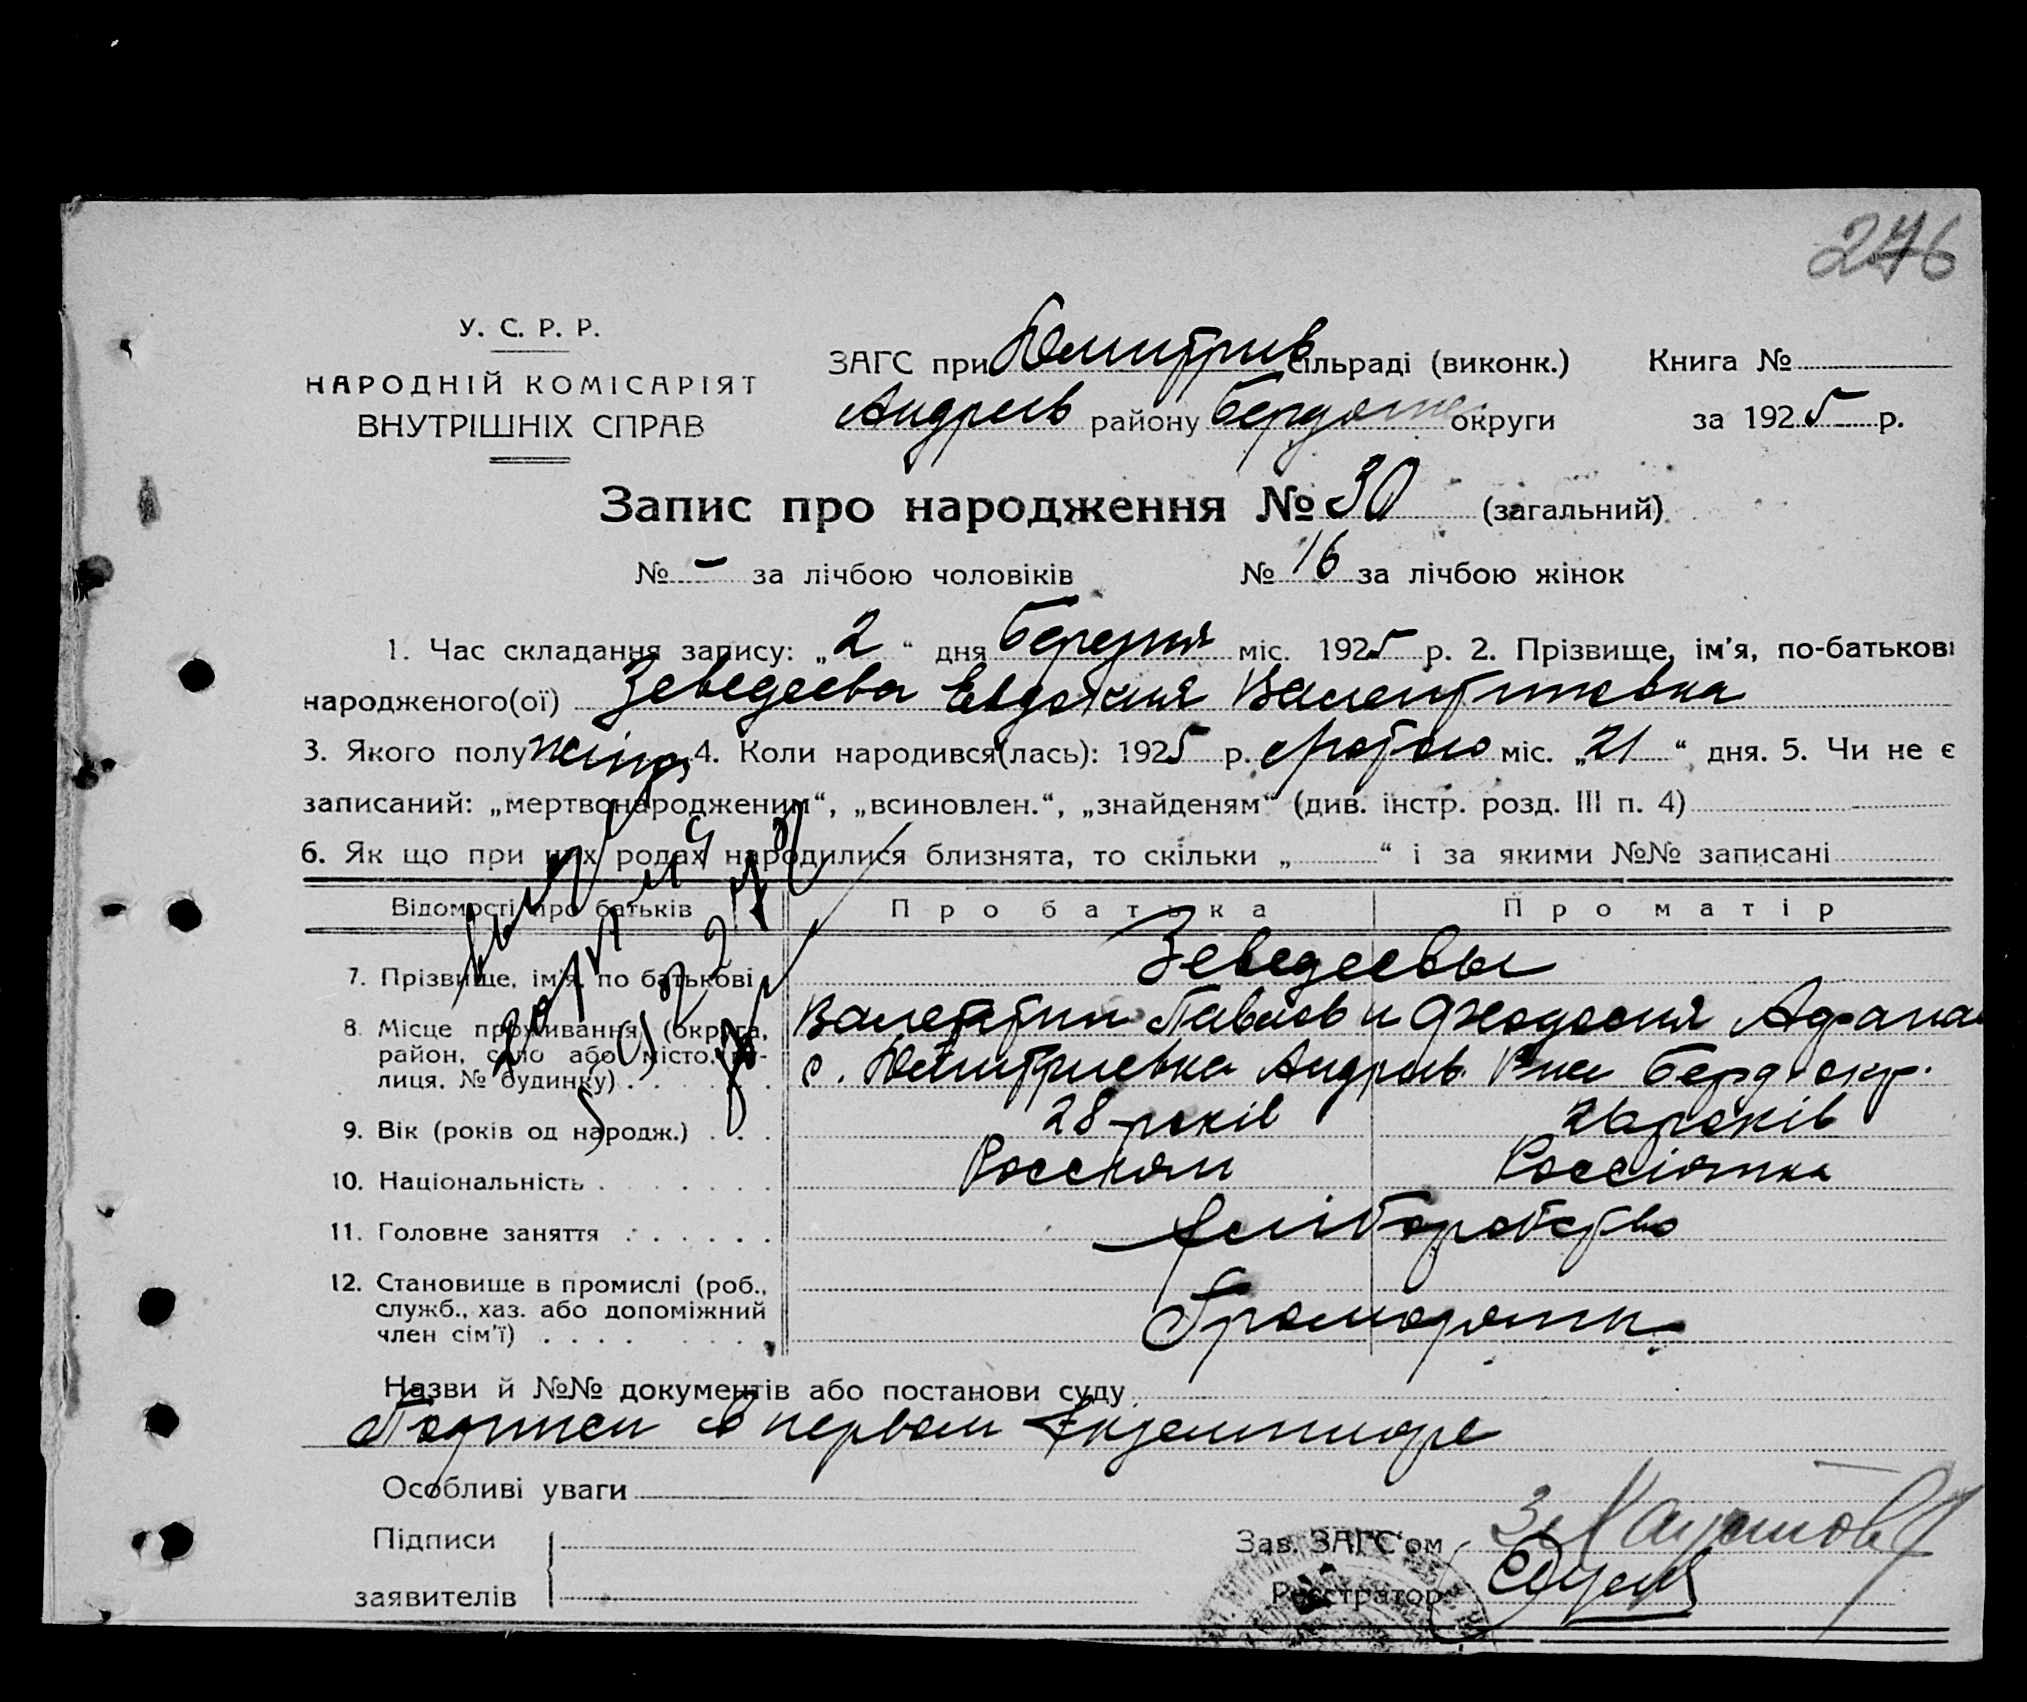 276
У. С. Р. Р.
НАРОДНІЙ КОМІСАРІЯТ
ВНУТРІШНІХ СПРАВ
ЗАГС при Дмитрив сільраді (виконк.) Книга №
Андреев району Бердянс округи за 1925 р.
Запис про народження № 30 (загальний)
№ - за лічбою чоловіків № 16 за лічбою жінок
1. Час складання запису: „2“ дня березня міс. 1925 р. 2. Прізвище, ім'я, по-батькові
народженого(ої) Зеведеева Евдокия Валентиновна
3. Якого полу жіноч 4. Коли народився(лась): 1925 р. лютого міс. „21“ дня. 5. Чи не є
записаний: „мертвонародженим“, „всиновлен.“, „знайденям“ (див. інстр. розд. III п. 4)
6. Як що при цих родах народилися близнята, то скільки „ “ і за якими №№ записані
Відомості про батьків Про батька Про матір
7. Прізвище, ім'я, по батькові Зеведеевы
Валентин Павлов и Феодосия Афана
8. Місце проживання (округа,
район, село або місто, ву-
лиця, № будинку) с. Дмитриевка Андреев. Р-на Берд. окр.
9. Вік (років од народж.) 28 років 26 років
10. Національність Россиян Россіянка
11. Головне заняття Хліборобство
12. Становище в промислі (роб.,
служб., хаз. або допоміжний
член сім'ї)
Назви й №№ документів або постанови суду
Подписи в первом Екземпляре
Особливі уваги
Підписи
заявителів
Зав. ЗАГС'ом
Реєстратор